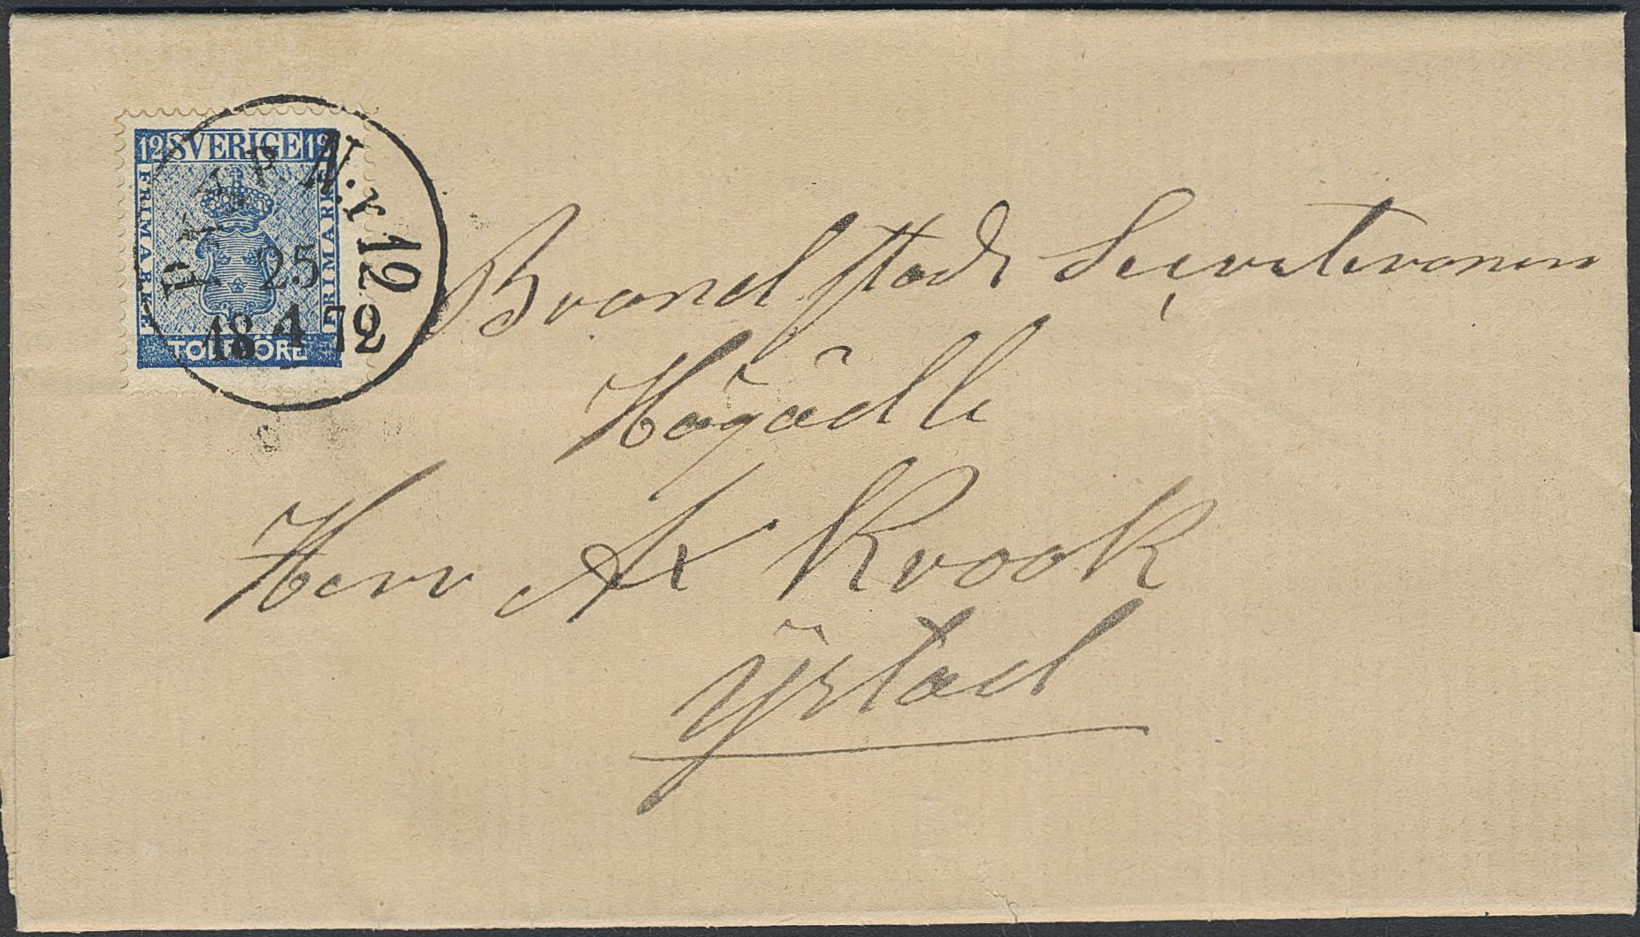 12 SVERIGE 12
FRIMARKE
FRIMARKE
TOLF ÖRE
PKXP. N:r 12
25
18 4 72
Brandstods Secreteraren
Högädle
Herr Ax Krook
Ystad